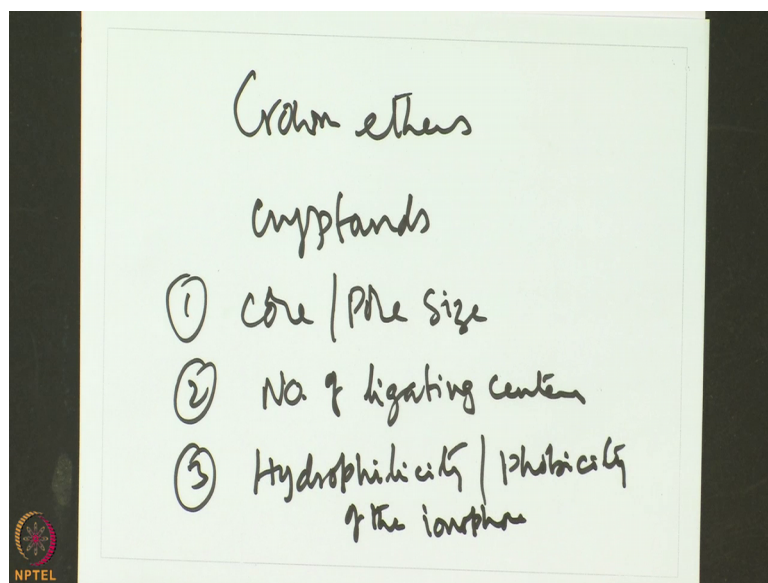 Crown ethers
Cryptands
① Core / Pore size
② No. of ligating centers
③ Hydrophilicity / phobicity
of the ionophore
NPTEL